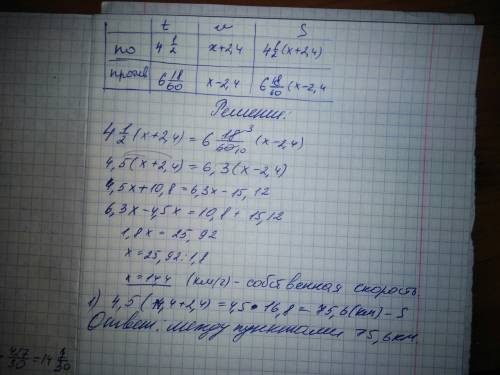 t v S
по 4 1/2 x+2,4 4 1/2 (x+2,4)
против 6 18/60 x-2,4 6 18/60 (x-2,4
Решение:
4 1/2 (x+2,4) = 6 18 3/60 10 (x-2,4)
4,5(x+2,4) = 6,3(x-2,4)
4,5x+10,8 = 6,3x-15,12
6,3x-4,5x = 10,8+15,12
1,8x = 25,92
x = 25,92:1,8
x = 14,4 (км/г) - собственная скорость
1) 4,5(14,4+2,4) = 4,5 • 16,8 = 75,6 (км) - S
Ответ: между пунктами 75,6 км